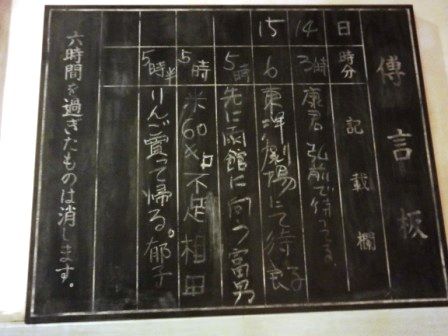 傳言板
日 時分 記載欄
14 3時 康君 弘前で待つてます
15 6 劇場にて待る 良
5時 先に函館に向つ 富男
5時 米60キロ不足 相田
5時半 りんご賣って帰る。郁子
六時間を過ぎたものは消します。